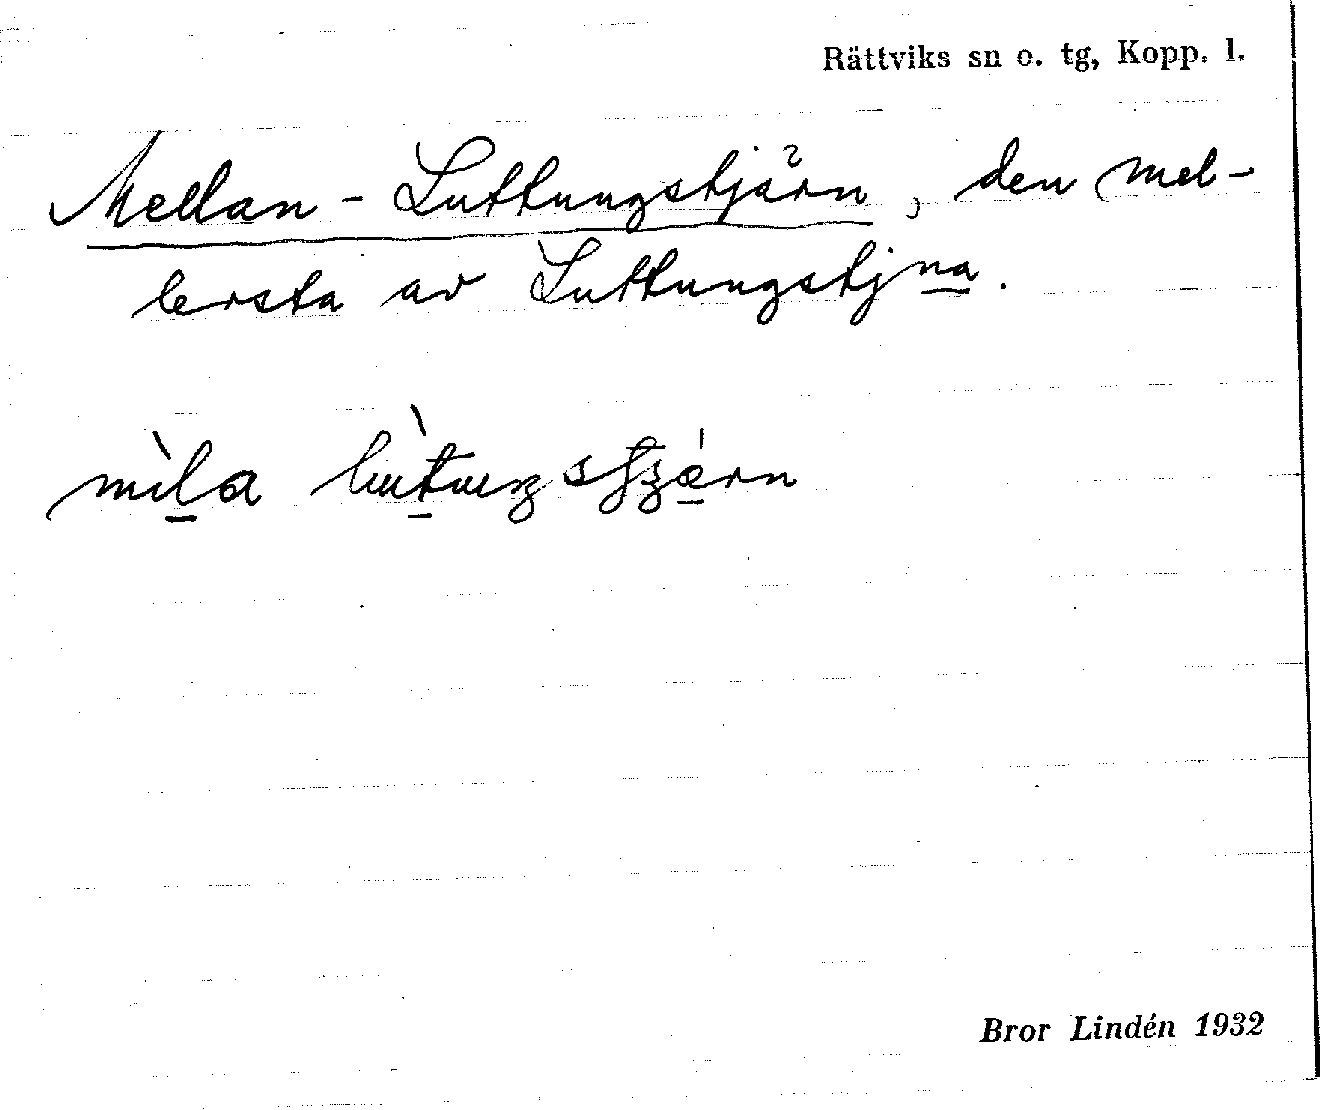 Rättviks sn o. tg, Kopp. l.
Mellan-Luttungstjärn, den mel-
lersta av Luttungstjna.
mìla
Bror Lindén 1932